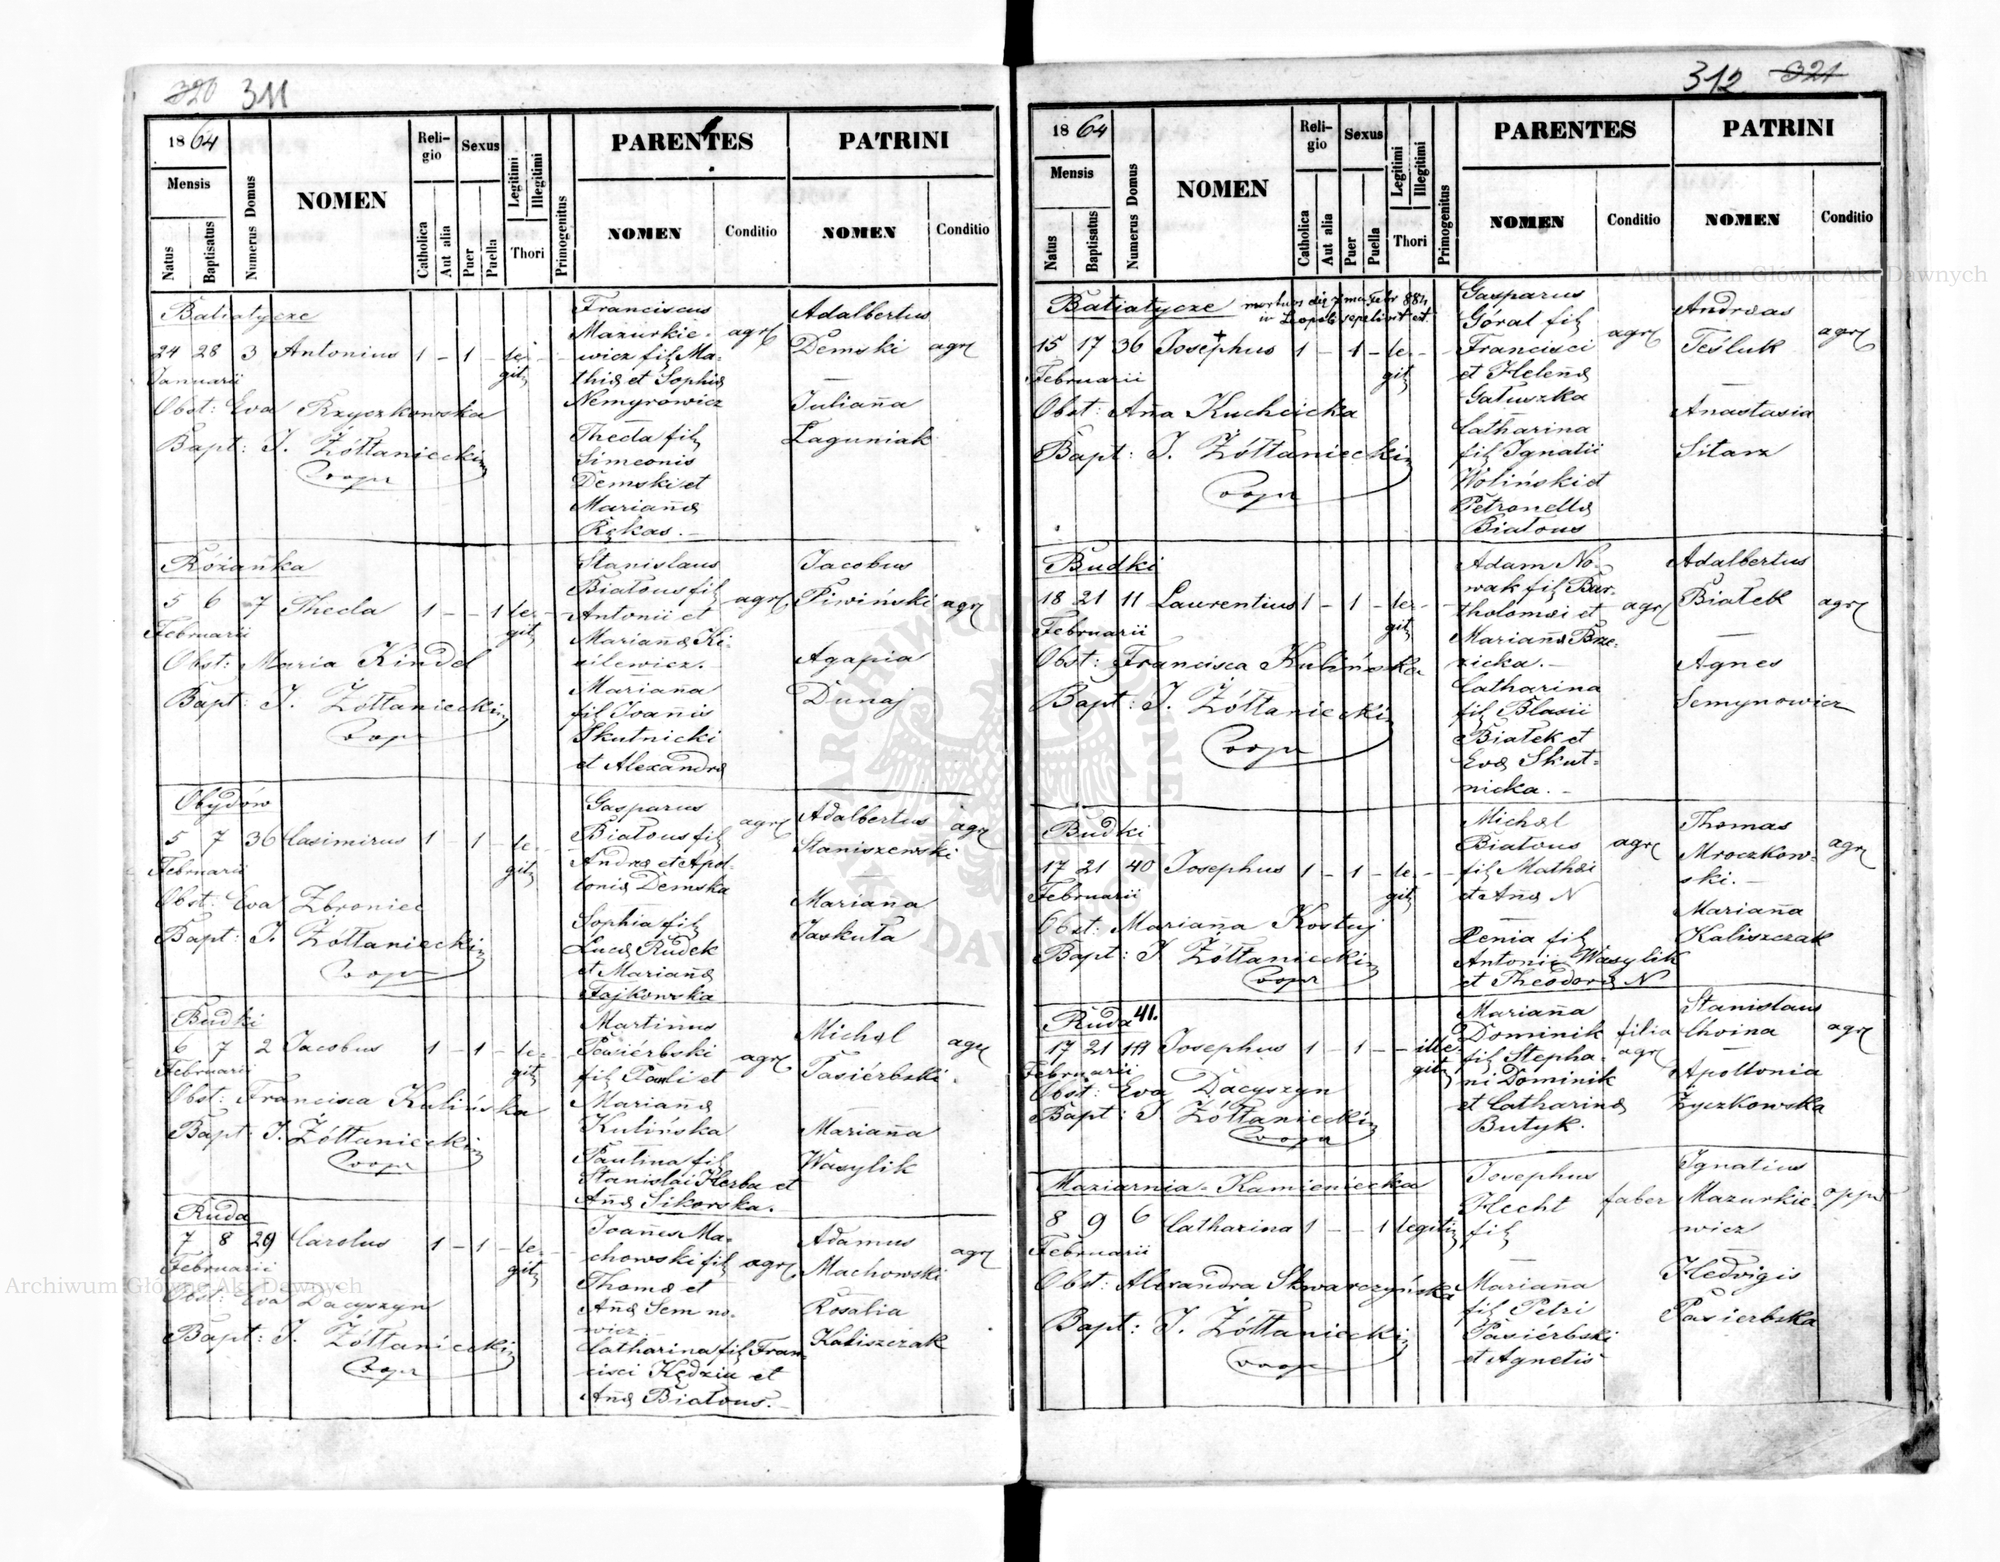 320 311
1864
Mensis
Natus
Baptisatus
Numerus Domus
NOMEN
Reli-
gio
Catholica
Aut alia
Sexus
Puer
Puella
Legitimi
Illegitimi
Thori
Primogenitus
PARENTES
NOMEN
Conditio
PATRINI
NOMEN
Conditio
Batiatycze
24 28 3 Antonius 1 – 1 – le-
git
Januarii
Obst: Eva Rzyczkowska
Bapt: J. Żółtaniecki
Coopr
Franciscus
Mazurkie-
wicz fil Ma-
thiæ et Sophiæ
Nemyrowicz
Thecla fil
Simeonis
Demski et
Mariannæ
Rękas.
agr
Adalbertus
Demski
—
Julianna
Łaguniak
agr
Różanka
5 6 7 Thecla 1 – – 1 le-
git
Februarii
Obst: Maria Kindel
Bapt: J. Żółtaniecki
Coopr
Stanislaus
Białous fil
Antonii et
Mariannæ Ki-
silewicz.
Marianna
fil Joannis
Skutnicki
et Alexandræ
agr
Jacobus
Piwiński
Agapia
Dunaj
agr
Obydów
5 7 36 Casimirus 1 – 1 – le-
git
Februarii
Obst: Eva Zbroniec
Bapt: J. Żółtaniecki
Coopr
Gasparus
Białous fil
Andreæ et Apol-
loniæ Demska
Sophia fil
Lucæ Rudek
et Mariannæ
Fajkowska
agr
Adalbertus
Staniszewski
—
Marianna
Jaskuła
agr
Budki
6 7 2 Jacobus 1 – 1 – le-
git
Februarii
Obst: Francisca Kulińska
Bapt: J. Żółtaniecki
Coopr
Martinus
Pasiérbski
fil Pauli et
Mariannæ
Kulińska
Paulina fil
Stanislai Herba et
Annæ Sikorska.
agr
Michæl
Pasiérbski
—
Marianna
Wasylik
agr
Ruda
7 8 29 Carolus 1 – 1 – le-
git
Februarii
Obst: Eva Dacyszyn
Bapt: J. Żółtaniecki
Coopr
Joannes Ma-
chowski fil
Thomæ et
Annæ Semno-
wicz
Catharina fil Fran-
cisci Kędziu et
Annæ Białous.
agr
Adamus
Machowski
Rosalia
Kaliszczak
agr
312 321
1864
Mensis
Natus
Baptisatus
Numerus Domus
NOMEN
Reli-
gio
Catholica
Aut alia
Sexus
Puer
Puella
Legitimi
Illegitimi
Thori
Primogenitus
PARENTES
NOMEN
Conditio
PATRINI
NOMEN
Conditio
Batiatycze
15 17 36 Josephus 1 – 1 – le-
git
Februarii
Obst: Anna Kuchcicka
Bapt: J. Żółtaniecki
Coopr
Gasparus
Góral fil
Francisci
et Helenæ
Gałuszka
Catharina
fil Ignatii
Woliński et
Petronellæ
Białous
agr
Andreas
Teśluk
—
Anastasia
Sitarz
agr
Budki
18 21 11 Laurentius 1 – 1 – le-
git
Februarii
Obst: Francisca Kulińska
Bapt: J. Żółtaniecki
Coopr
Adam No-
wak fil Bar-
tholomæi et
Mariannæ Brze-
zicka.
Catharina
fil Blasii
Białek et
Evæ Skut-
nicka.
agr
Adalbertus
Białek
—
Agnes
Semynowicz
agr
Budki
17 21 40 Josephus 1 – 1 – le-
git
Februarii
Obst: Marianna Kostuj
Bapt: J. Żółtaniecki
Coopr
Michæl
Białous
fil Mathæi
et Annæ N
—
Xenia fil
Antonii Wasylik
et Theodoræ N
agr
Thomas
Mroczkow-
ski.
Marianna
Kaliszczak
agr
Ruda 41.
17 21 Josephus 1 – 1 – – ille-
git
Februarii
Obst: Eva Dacyszyn
Bapt: J. Żółtaniecki
Coopr
Marianna
Dominik
fil Stepha-
ni Dominik
et Catharinæ
Butyk.
filia
agr
Stanislaus
Choina
—
Apollonia
Życzkowska
agr
Maziarnia-Kamieniecka
8 9 6 Catharina 1 – – 1 legitiz
Februarii
Obst: Alexandra Skwarczyńska
Bapt: J. Żółtaniecki
Coopr
Josephus
Hecht
fil
—
Marianna
fil Petri
Pasiérbski
et Agnetis
faber
Ignatius
Mazurkie-
wicz
Hedvigis
Pasierbska
opp
Archiwum Główne Akt Dawnych
Archiwum Główne Akt Dawnych